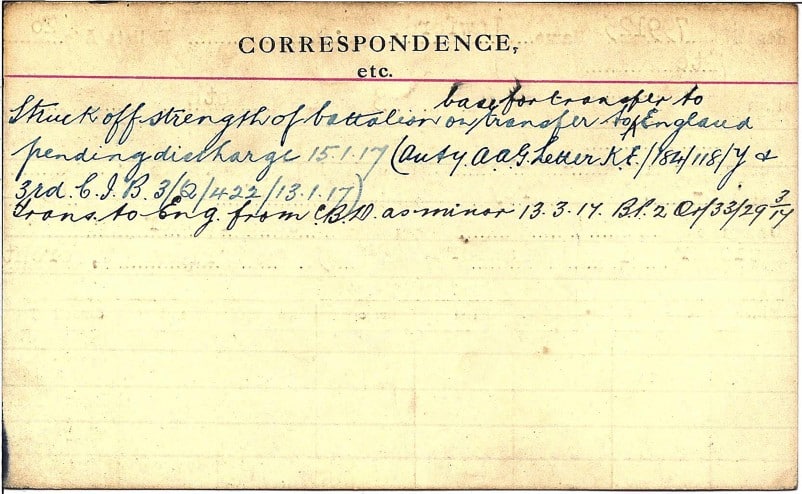 CORRESPONDENCE,
etc.
base for transfer to
Struck off strength of battalion on transfer to England
pending discharge 15.1.17 (Auty. A.A.G. Letter K.E./184/118/Y &
3rd. C.I.B. 3/Q/422/13.1.17)
Trans. to Eng. from C.B.D. as minor 13.3.17. B.1.2 Or/33/29 3/17